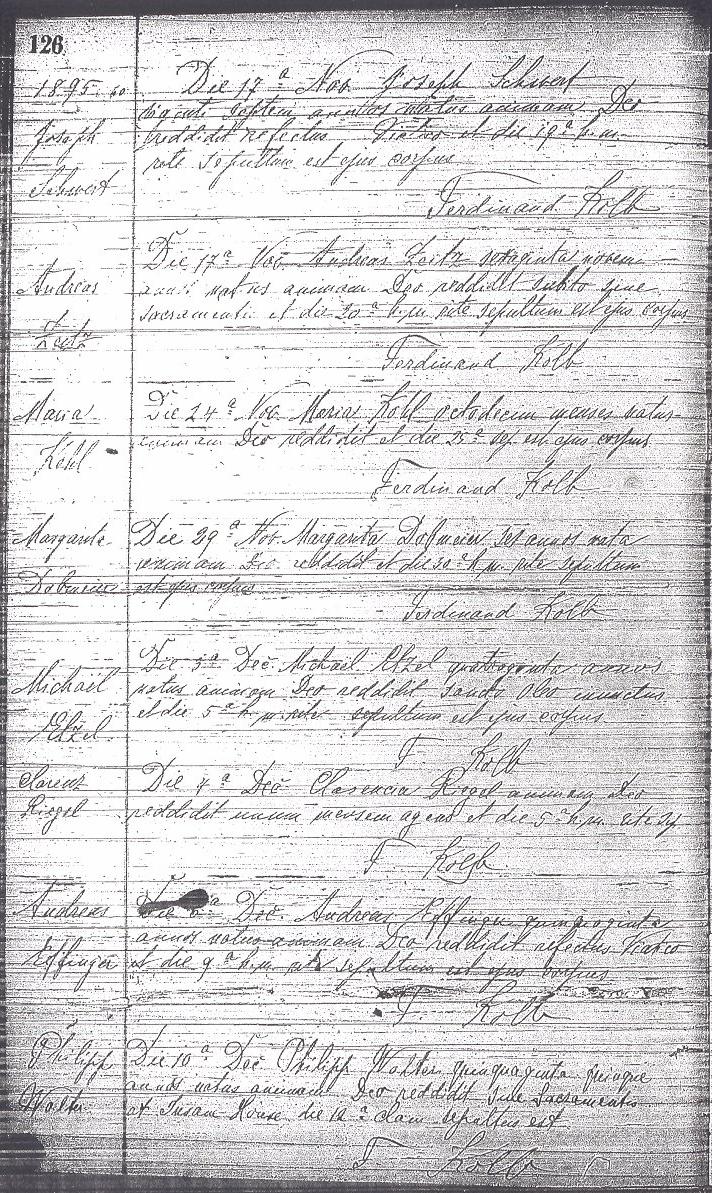 126
1895.
Joseph
Schwert
Die 17ª Nov Joseph Schwert
viginti septem annos natus animam Deo
reddidit refectus Viatico et die 19ª h.m.
rite sepultum est ejus corpus
Ferdinand Kolb
Andreas
Zeitz
Die 17ª Nov Andreas Zeitz novem
annos natus animam Deo reddidit subito sine
sacramentis et die 20ª h.m. rite sepultum est ejus corpus
Ferdinand Kolb
Maria
Kohl
Die 24ª Nov Maria Kohl octodecim menses natus
animam Deo reddidit et die 25ª sep. est ejus corpus
Ferdinand Kolb
Margarita
Die 29ª Nov Margarita annos nata
animam Deo reddidit et die 30ª h.m. rite sepultum
est ejus corpus
Ferdinand Kolb
Michael
Etzel
Die 3ª Dec Michael Etzel annos
natus animam Deo reddidit Sancto Oleo inunctus
et die 5ª h.m. rite sepultum est ejus corpus
F. Kolb
Clarenz
Riegel
Die 4ª Dec Clarencia Riegel animam Deo
reddidit unum mensem agens et die 5ª h.m. rite sep
F Kolb
Andreas
Effinger
Die Dec. Andreas Effinger quinquaginta
annos natus animam Deo reddidit refectus Viatico
et die 9ª h.m. rite sepultum est ejus corpus
F. Kolb
Philipp
Walter
Die 10ª Dec Philipp Walter quinquaginta quinque
annos natus animam Deo reddidit sine Sacramentis
at Insam House die 12ª clam sepultus est
F Kolb